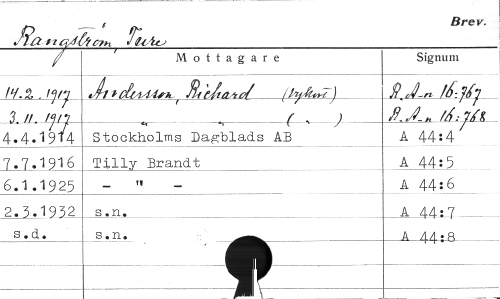 Brev.
Rangström, Ture
Mottagare Signum
14.2.1917 Andersson, Richard (vykort) R.A-n 16:767
3.11.1917 " " ( " ) R.A-n 16:768
4.4.1914 Stockholms Dagblads AB A 44:4
7.7.1916 Tilly Brandt A 44:5
6.1.1925 - " - A 44:6
2.3.1932 s.n. A 44:7
s.d. s.n. A 44:8